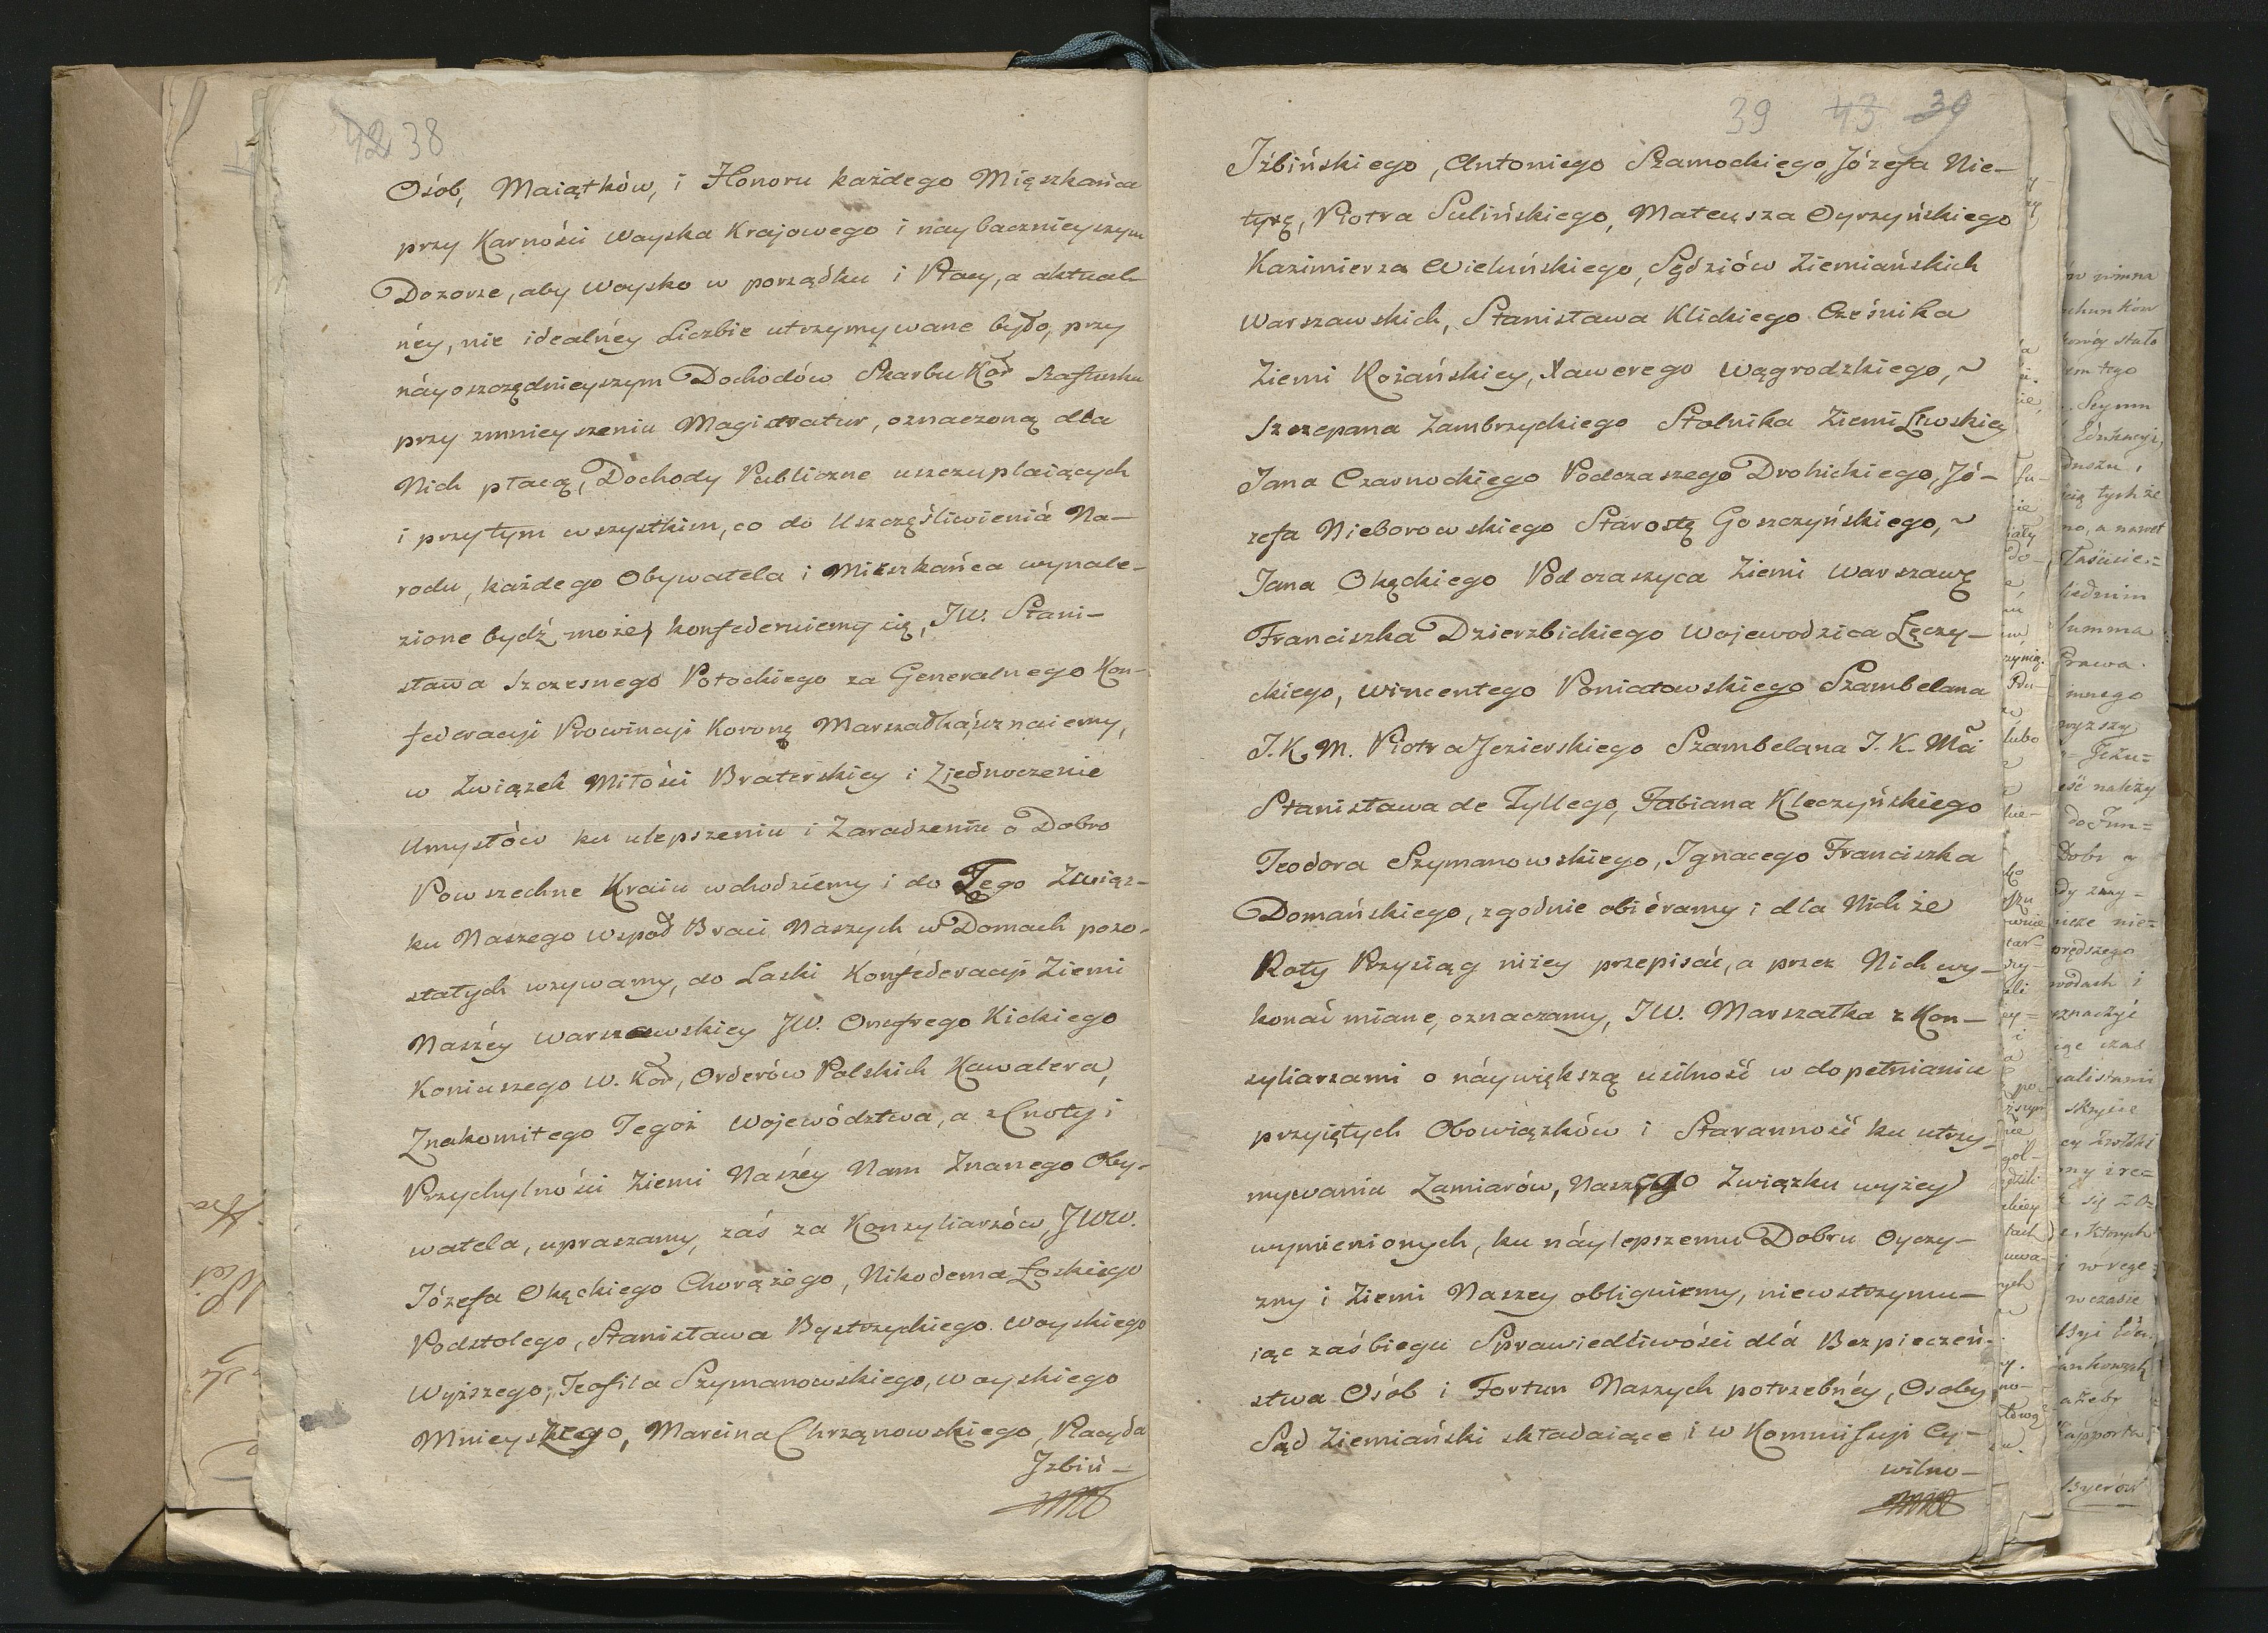 42 38
Osób, Maiątków, i Honoru każdego Mięszkańca
przy Karności Woyska Krajowego i naybacznieyszym
Dozorze, aby Woysko w porządku i Płacy, a aktual-
néy, nie idealnéy Liczbie utrzymywane było, przy
náyoszczędnieyszym Dochodów Skarbu Kor Szafunku
przy zmnieyszeniu Magistratur, oznaczoną dla
Nich płacą, Dochody Publiczne uszczuplaiących
i przytym wszystkim, co do Uszczęśliwieniá Na-
rodu, każdego Obywatela i Mieszkańca wynale-
zione bydź może, konfederuiemy się, JW. Stani-
sława Szczesnego Potockiego za Generalnego Kon-
federacyi Prowincyi Koronę Marszałka, uznaiemy,
w Związek Miłości Braterskiey i Ziednoczenie
Umysłów ku ulepszeniu i Zaradzeniu o Dobro
Powszechne Kraiu wchodziemy i do Tego Związ-
ku Naszego wspoł Braci Naszych w Domach pozo-
stałych wzywamy, do Laski Konfederacyi Ziemi
Naszéy Warszawskiey JW. Onufrego Kickiego
Koniuszego W. Kor, Orderów Polskich Kawalera,
Znakomitego Tegoż Województwa, a z Cnoty i
Przychylności Ziemi Naszéy Nam Znanego Oby-
watela, upraszamy, zaś za Konsyliarzów, JWW.
Józefa Okęckiego Chorążego, Nikodema Łoskiego
Podstolego, Stanisława Bystrzyckiego Woyskiego
Wyższego, Teofila Szymanowskiego, Woyskiego
Mnieyszego, Marcina Chrzanowskiego, Placyda
Izbiń-
39 43 39
Iżbińskiego, Antoniego Szamockiego, Józefa Nie-
tyxę, Piotra Sulińskiego, Mateusza Oyrzyńskiego
Kazimierza Wieluńskiego, Sędziów Ziemiańskich
Warszawskich, Stanisława Klickiego Cześnika
Ziemi Rożańskiey, Xawerego Wągrodzkiego, ~
Szczepana Zambrzyckiego Stolnika Ziemi Liwskiey
Jana Czarnockiego Podczaszego Drohickiego, Jó-
zefa Nieborowskiego Starostę Goszczyńskiego, ~
Jana Okęckiego Podczaszyca Ziemi Warszawę
Franciszka Dzierzbickiego Wojewodzica Łęczy-
ckiego, Wincentego Poniatowskiego Szambelana
J. K. M. Piotra Jezierskiego Szambelana J. K. Mci
Stanisława de Tyllego, Fabiana Kleczyńskiego
Teodora Szymanowskiego, Ignacego Franciszka
Domańskiego, zgodnie obiéramy i dla Nichże
Roty Przysiąg niżey przepisać, a przez Nich wy-
konać miane, oznaczamy, JW. Marszałka z Kon-
syliarzami o náywiększą usilność w dopełnianiu
przyiętych Obowiązków i Staranność ku utrzy-
mywaniu Zamiarów, Naszego Związku wyżey
wymienionych, ku náylepszemu Dobru Oyczy-
zny i Ziemi Naszey obliguiemy, niewstrzymu-
iąc zaś biegu Sprawiedliwości dlá Bezpieczeń-
stwa Osób i Fortun Naszych potrzebnéy, Osoby
Sąd Ziemiański składaiące i w Kommissyi Cy-
wilno-